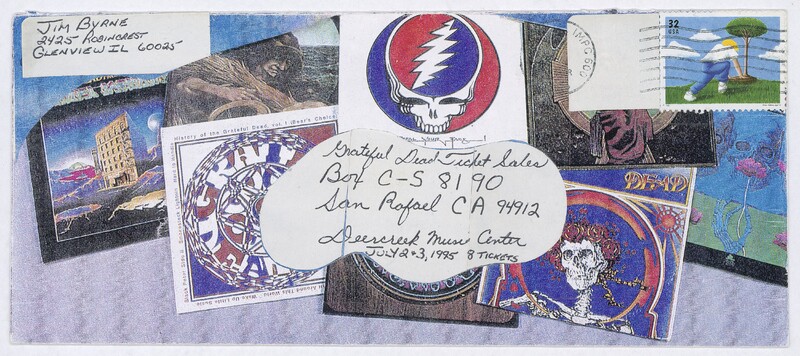 Jim Byrne
2425 Robincrest
Glenview IL 60025
32
USA
History of the Grateful Dead, Vol. 1 (Bear's Choice)
Grateful Dead Ticket Sales
Box C-S 8190
San Rafael CA 94912
Deercreek Music Center
July 2+3, 1995 8 Tickets
DEAD